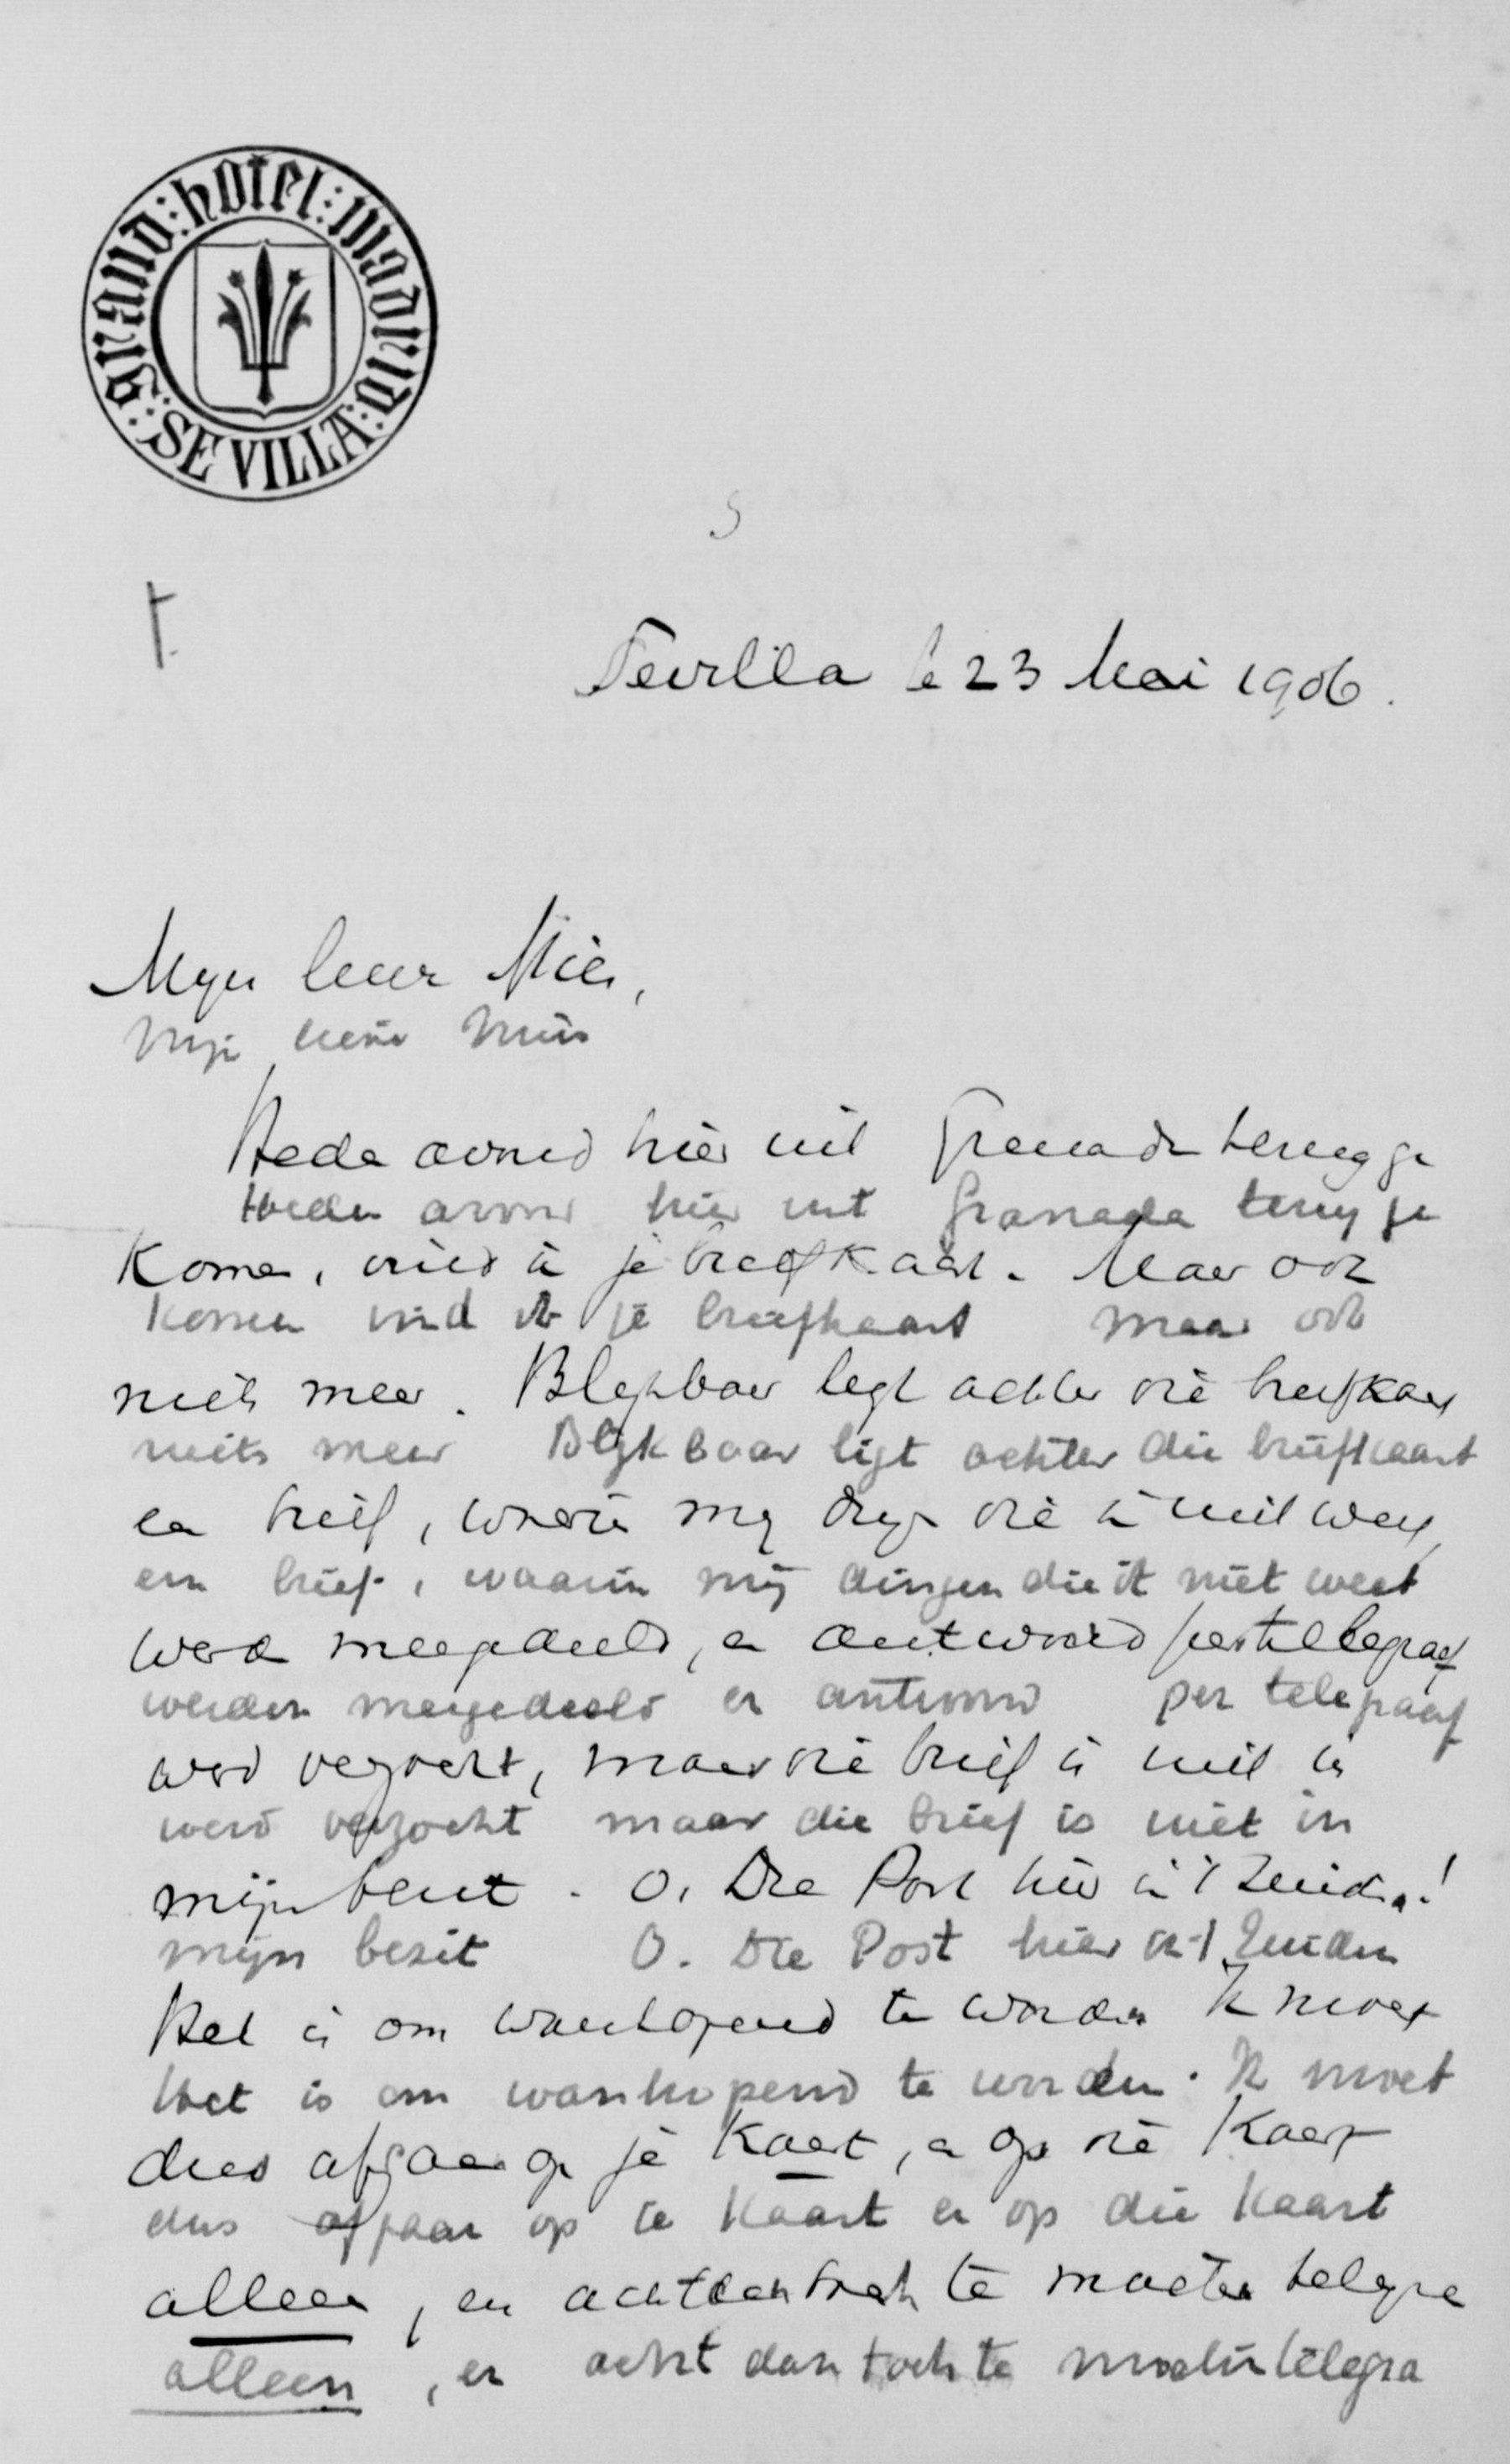 grand: hotel: madrid:
:SEVILLA:
5
I.
Sevilla le 23 Mai 1906.
Mijn lieve Mies,
Mijn lieve Mies
Heden avond hier uit Granada terugge
Heden avond hier uit Granada terug ge
komen, vind ik je briefkaart. Maar ook
komen vind ik je briefkaart maar ook
niets meer. Blijkbaar legt achter die briefkaart
niets meer Blijkbaar ligt achter die briefkaart
een brief, waarin mij dingen die ik niet weet,
een brief, waarin mij dingen die ik niet weet
werden meegedeeld, en antwoord per telegraaf
werden meegedeeld en antwoord per telegraaf
werd verzocht, maar die brief is niet in
werd verzocht maar die brief is niet in
mijn bezit. O, Die Post hier in 't Zuiden!
mijn bezit O. Die Post hier in 't Zuiden
Het is om wanhopend te worden Ik moet
Het is om wanhopend te worden. Ik moet
dus afgaan op je kaart, en op die kaart
dus afgaan op je kaart en op die kaart
alleen, en acht dan toch te moeten telegra
alleen, en acht dan toch te moeten telegra